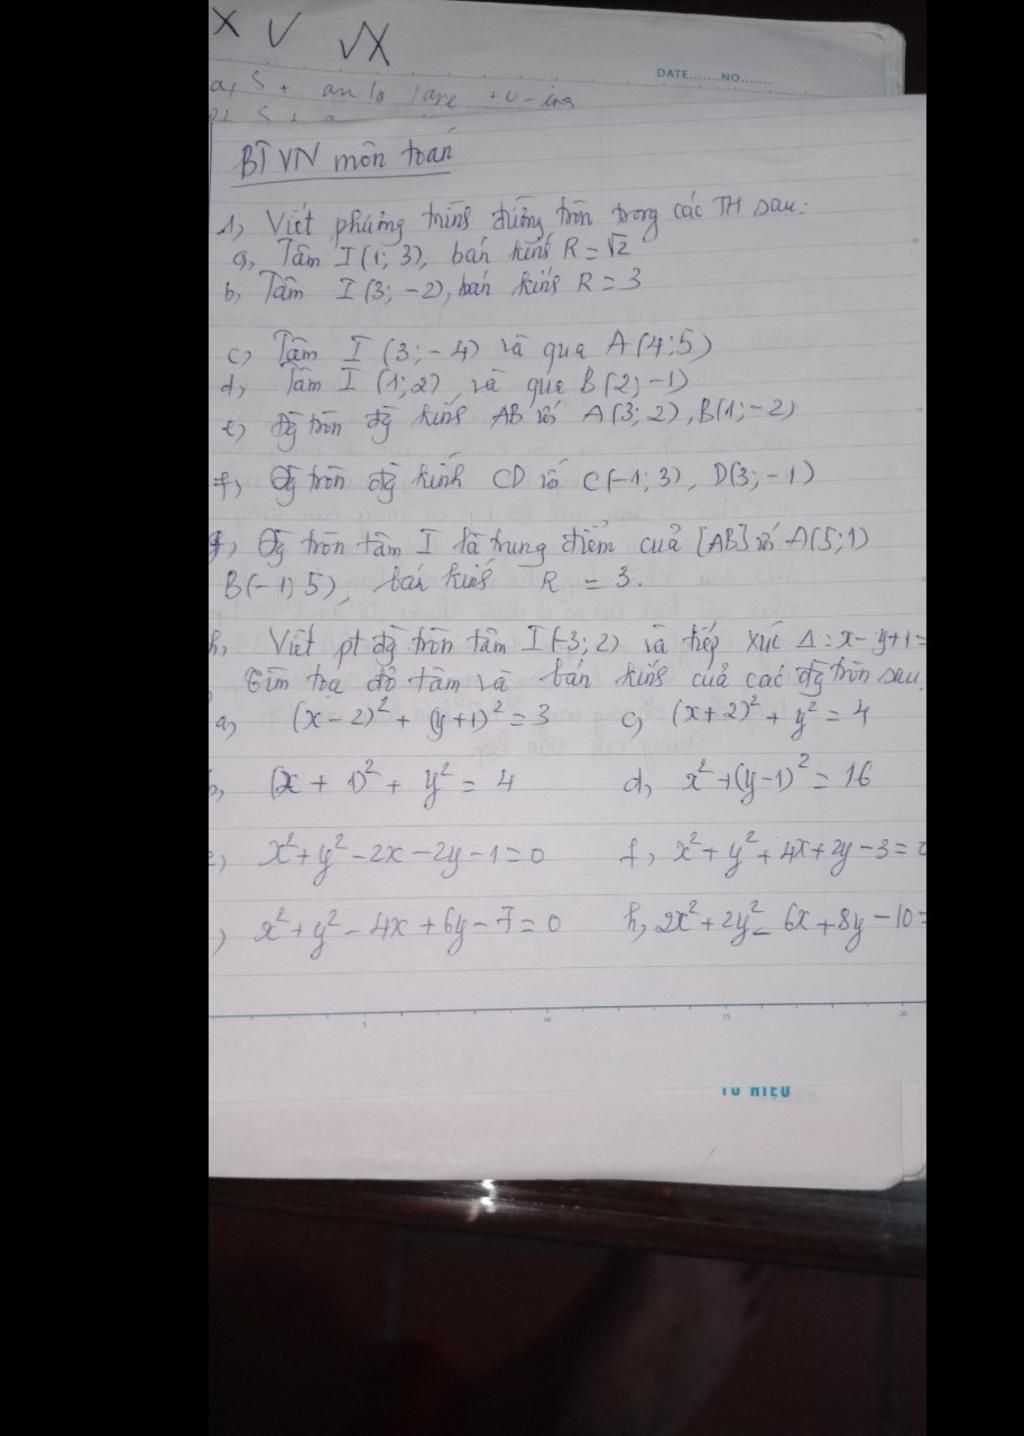 X V VX
DATE.......NO.......
a, S + an la
BTVN môn toán
1, Viết phương trình đường tròn trong các TH sau:
a, Tâm I(1; 3), bán kính R = √2
b, Tâm I(3; -2), bán kính R = 3
c, Tâm I (3; -4) và qua A(4;5)
d, Tâm I (1;2) và qua B(2; -1)
e, Đg tròn đg kính AB với A(3; 2), B(1; -2)
f, Đg tròn đg kính CD với C(-1; 3), D(3; -1)
g, Đg tròn tâm I là trung điểm của [AB] với A(5; 1)
B(-1; 5), bán kính R = 3.
h, Viết pt đg tròn tâm I(-3; 2) và tiếp xúc Δ: x - y + 1 =
Tìm tọa độ tâm và bán kính của các đg tròn sau
a, (x - 2)² + (y + 1)² = 3 c, (x + 2)² + y² = 4
b, (x + 1)² + y² = 4 d, x² + (y - 1)² = 16
e, x² + y² - 2x - 2y - 1 = 0 f, x² + y² + 4x + 2y - 3 = 0
, x² + y² - 4x + 6y - 7 = 0 h, 2x² + 2y² - 6x + 8y - 10 =
5 10 15 20